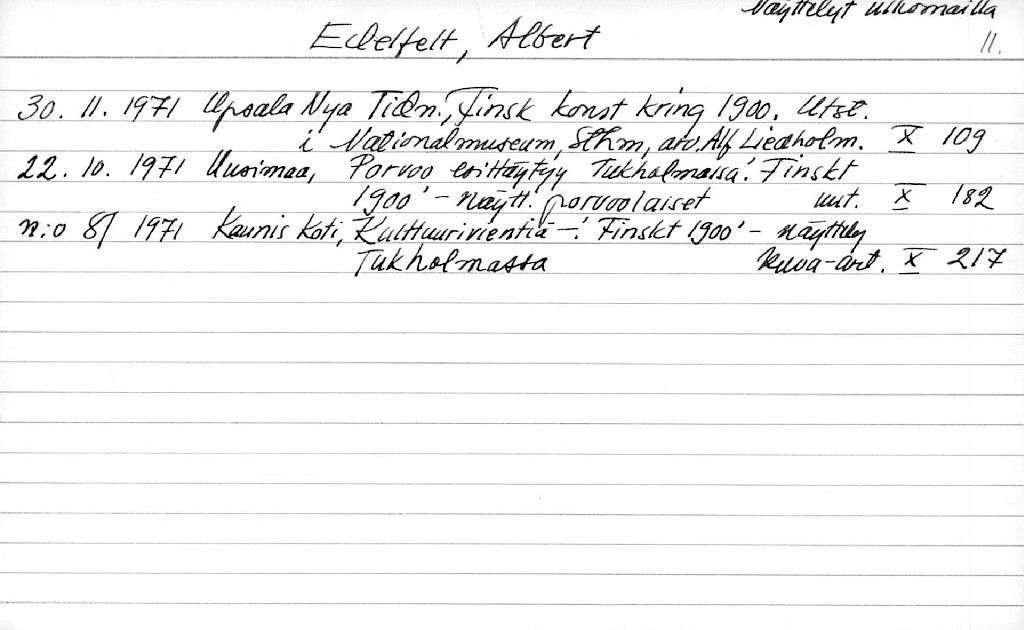 Näyttelyt ulkomailla
Edelfelt, Albert 11.
30. 11. 1971 Upsala Nya Tidn., Finsk konst kring 1900. Utst.
i Nationalmuseum, Sthm, arv. Alf Liedholm. X 109
22. 10. 1971 Uusimaa, Porvoo esittäytyy Tukholmassa. 'Finskt
1900' - näytt. porvoolaiset uut. X 182
n:o 8/ 1971 Kaunis Koti, Kulttuurivientiä - 'Finskt 1900' - näyttely
Tukholmassa kuva-art. X 217